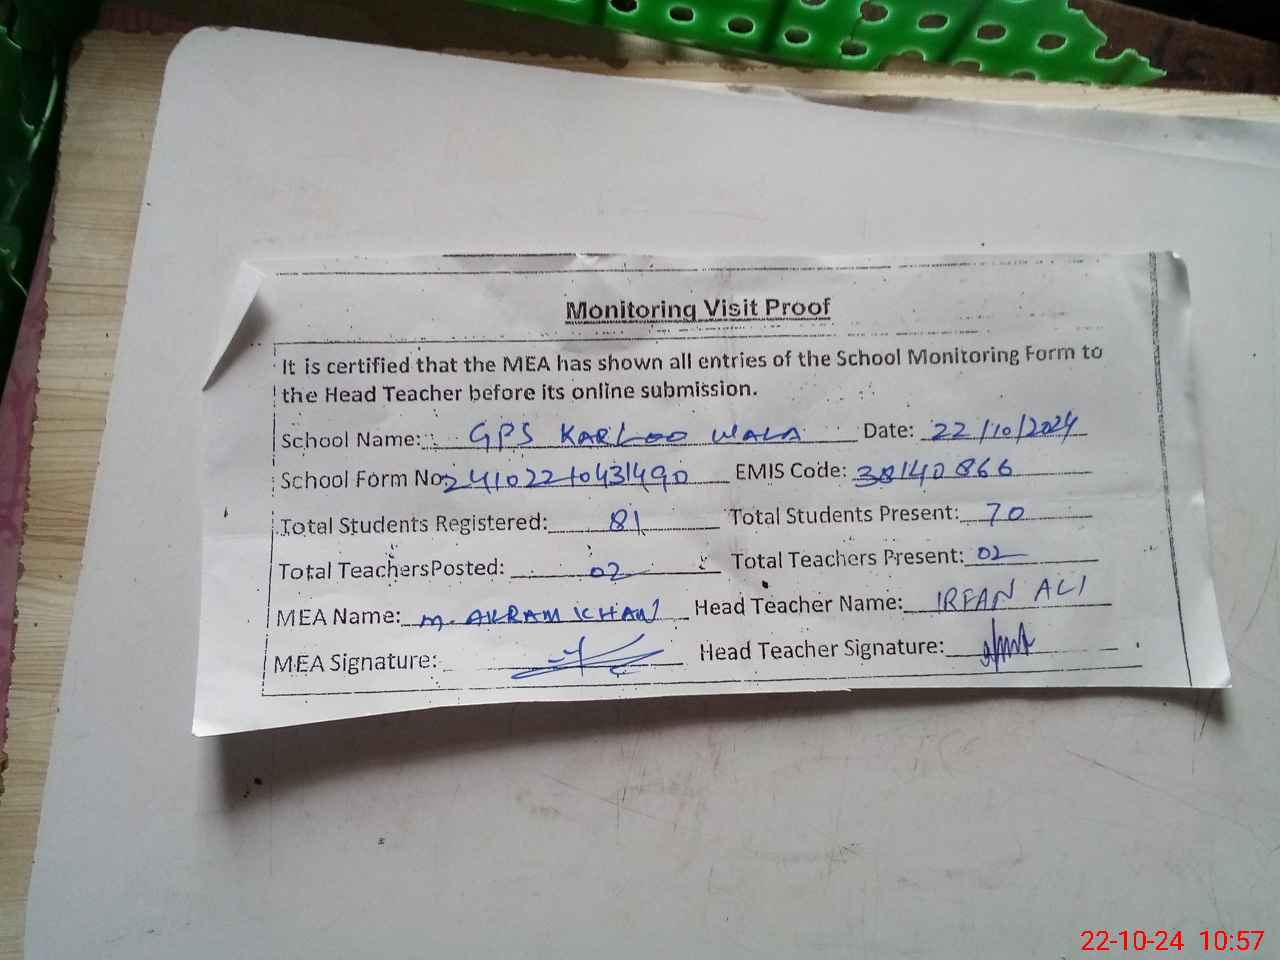 Monitoring Visit Proof
It is certified that the MEA has shown all entries of the School Monitoring Form to
the Head Teacher before its online submission.
School Name: GPS KARLOO WALA Date: 22/10/2024
School Form No: 24102210431490 EMIS Code: 38140866
Total Students Registered: 81 Total Students Present: 70
Total TeachersPosted: 02 Total Teachers Present: 02
MEA Name: M. AKRAM KHAN Head Teacher Name: IRFAN ALI
MEA Signature: Head Teacher Signature:
22-10-24 10:57